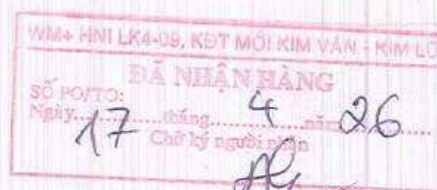 WM+ HNI LK4-09, KĐT MỚI KIM VĂN - KIM LŨ
ĐÃ NHẬN HÀNG
SỐ PO/TO:
Ngày 17 tháng 4 năm 26
Chữ ký người nhận